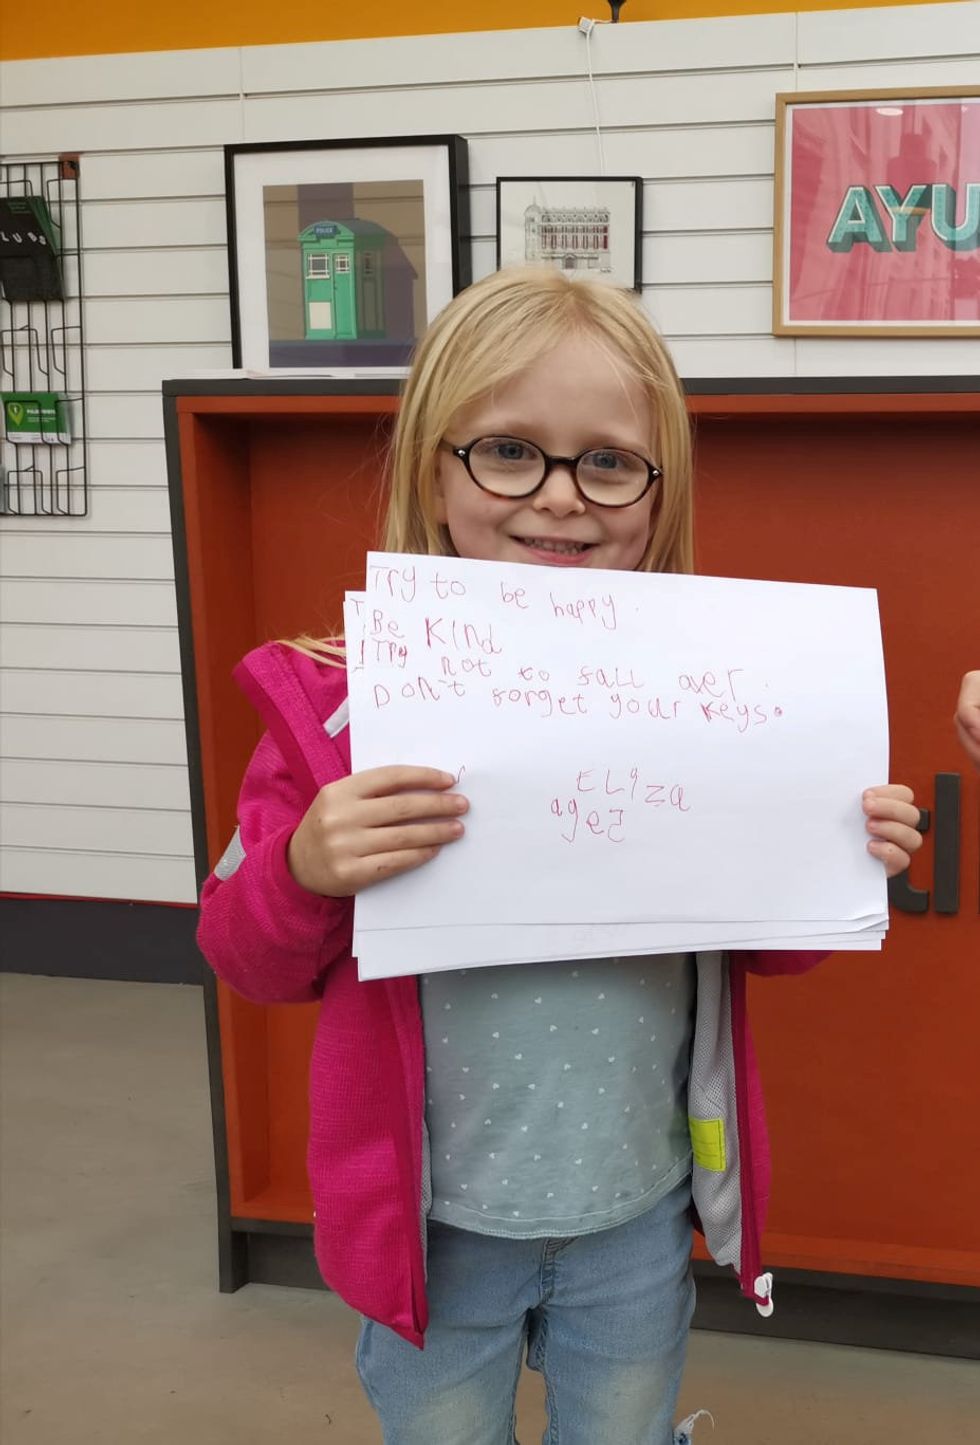 POLICE
AYU
Try to be happy.
Be Kind
Try not to fall over.
Don't forget your keys.
ELiza
age